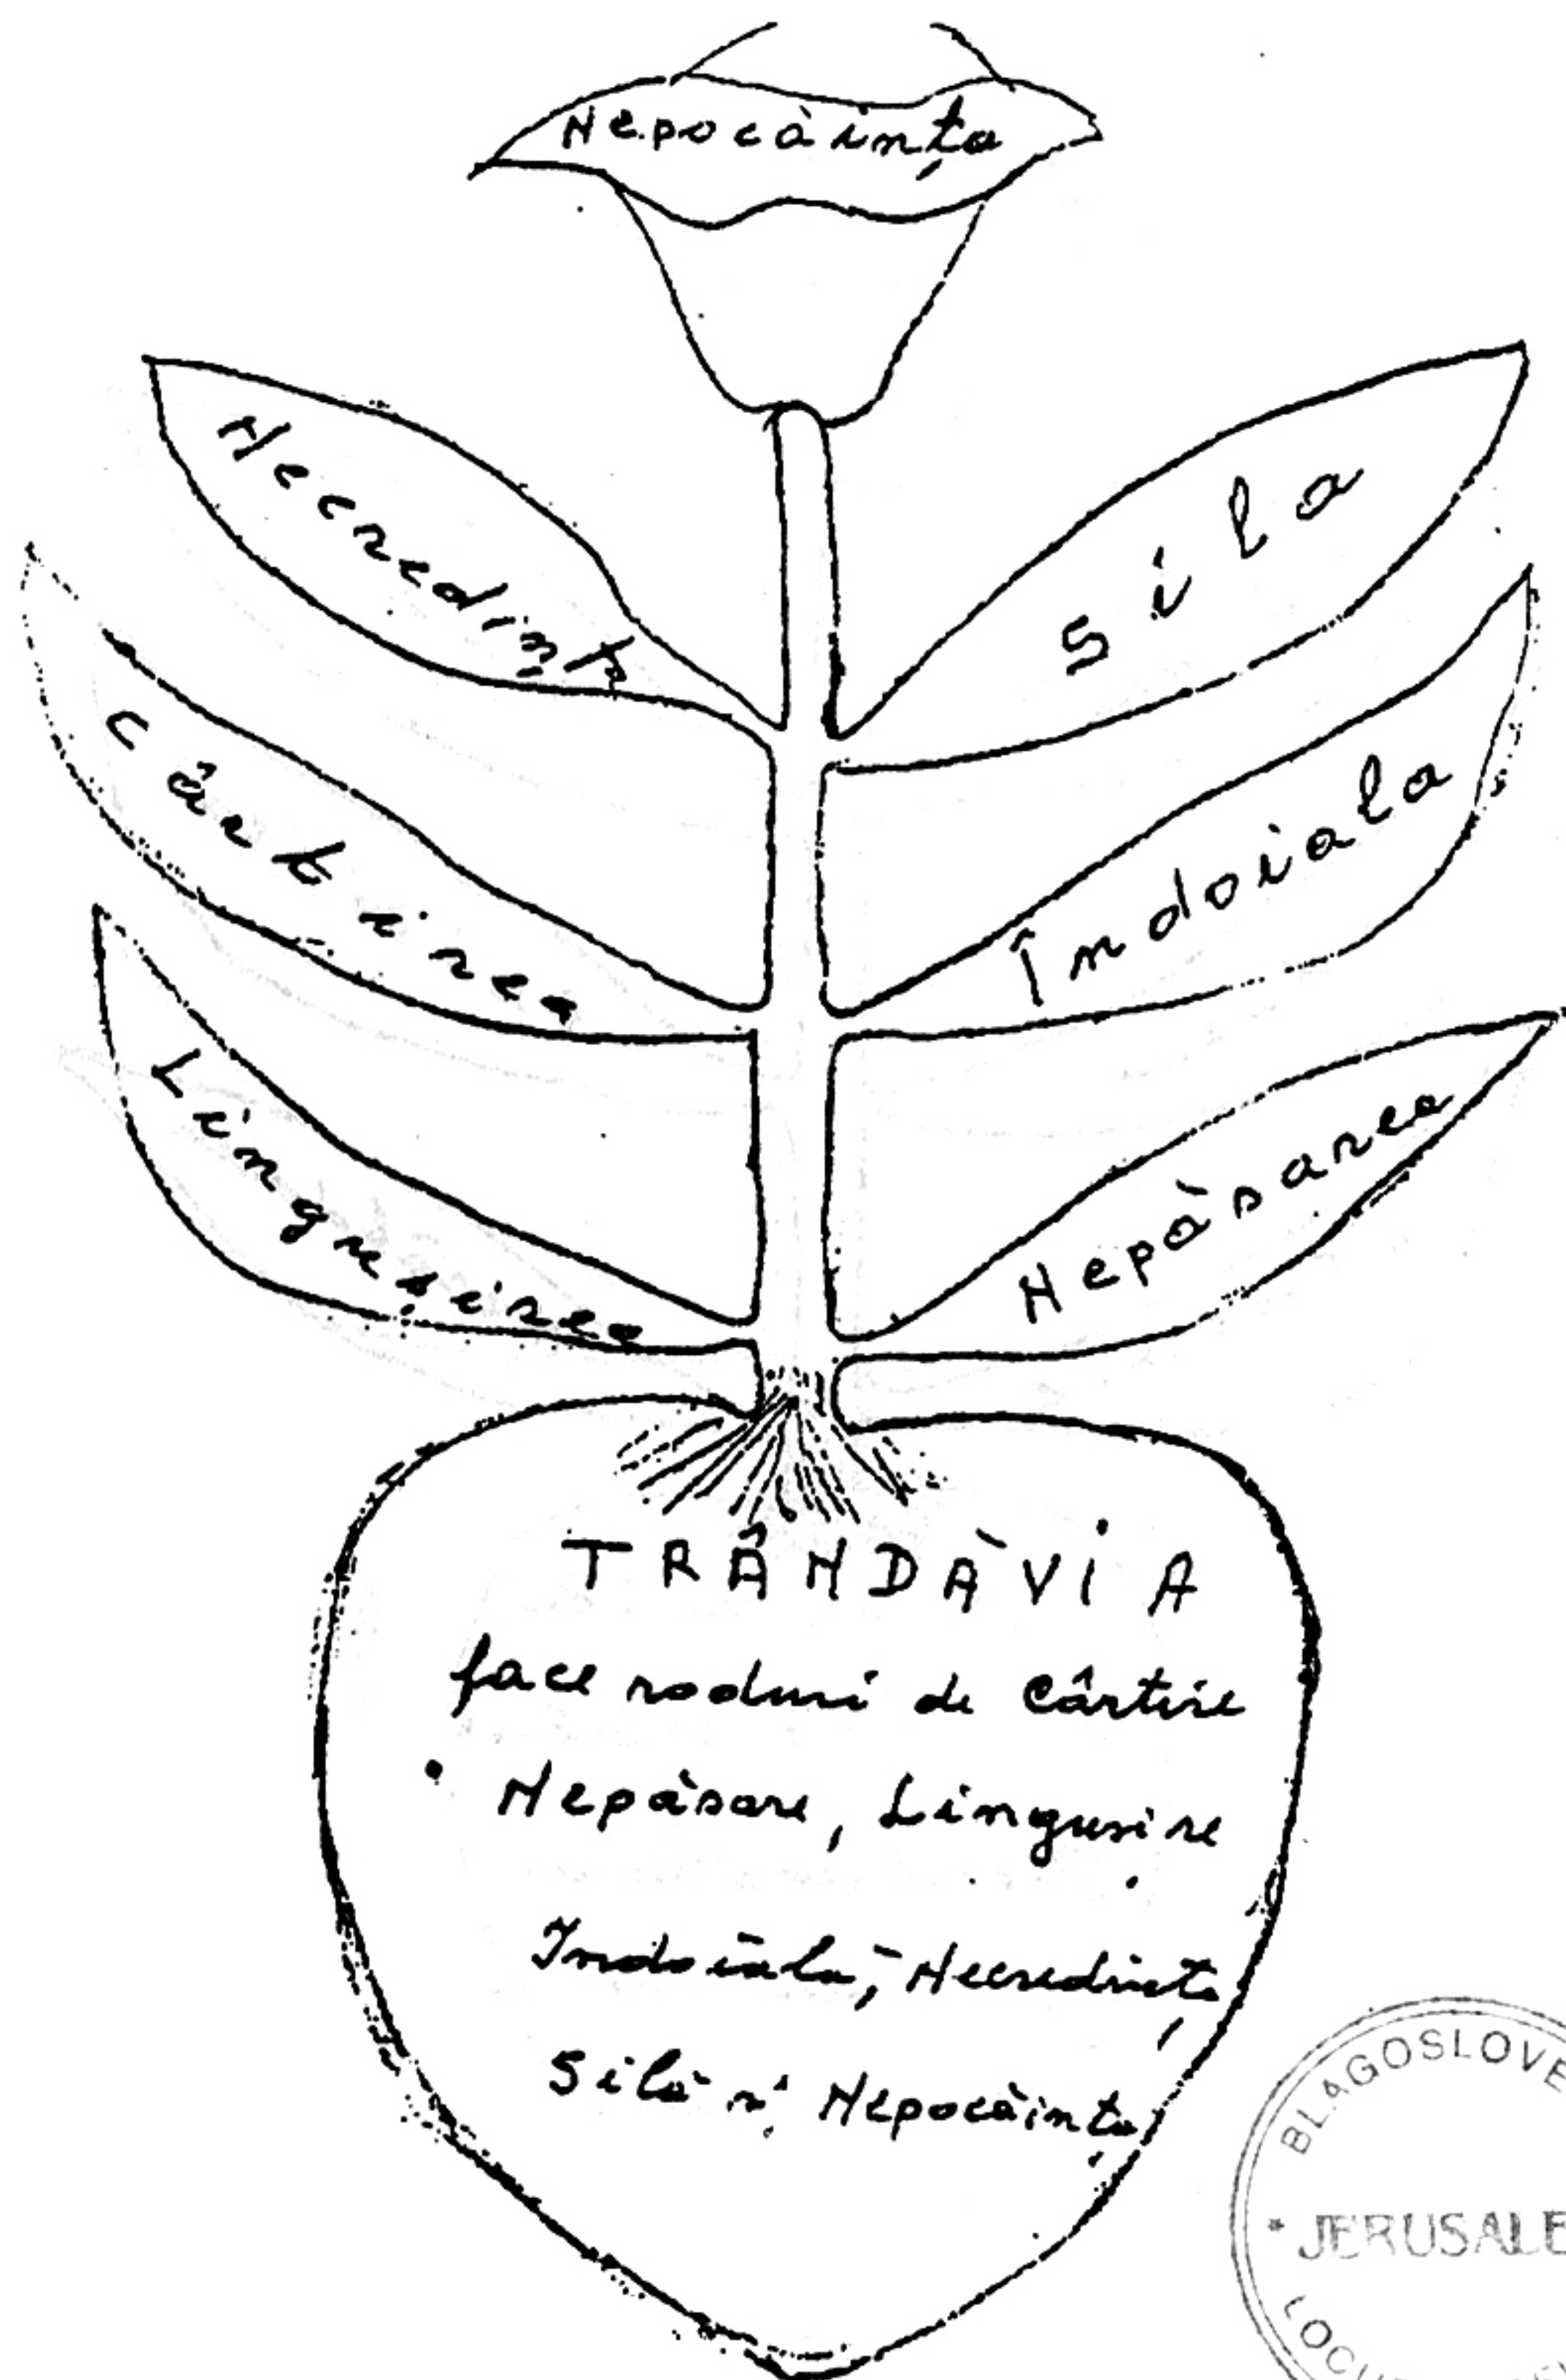 Nepocàința
Necredinț
Sila
Cârtirea
Îndoiala
Lingușirea
Nepàsarea
TRÂNDÀVIA
face roduri de Cârtire
Nepàsare, Lingusire
Indoiala, Necredința
Silà și Nepocàința
BLAGOSLOVE
* JERUSALE